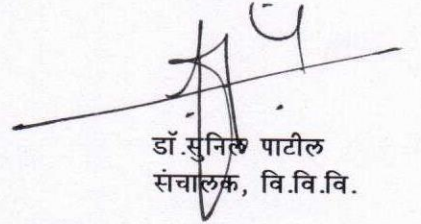 डॉ.सुनिल पाटील
संचालक, वि.वि.वि.